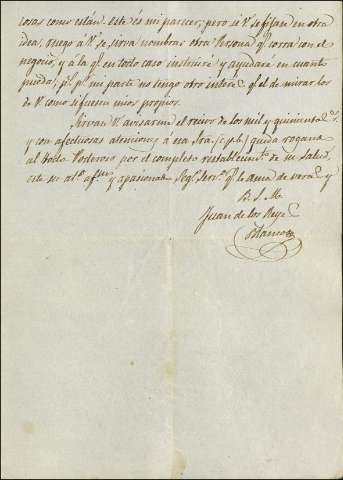 cosas como están. Este és mi parecer; pero si V. se fijan en otra
idea, ruego á V. se sirva nombrar otra Persona q.e corra con el
negocio, y á la q.e en todo caso instruiré y ayudaré en cuanto
pueda; p.s p.r mi parte no tengo otro interés q.e el de mirar los
de V. como si fuesen mios propios.
Sirvan V. avisarme el recivo de los mil y quinientos
y con afectuosas atenciones á esa Sra. (c.p.b.) queda rogando
al Todo Poderoso por el completo restablecim.to de su salud
este su at.o af.mo y apasionado Seg.o Serv.or q.e le ama de veras y
B. S. M.
Juan de los Reyes
Blanco